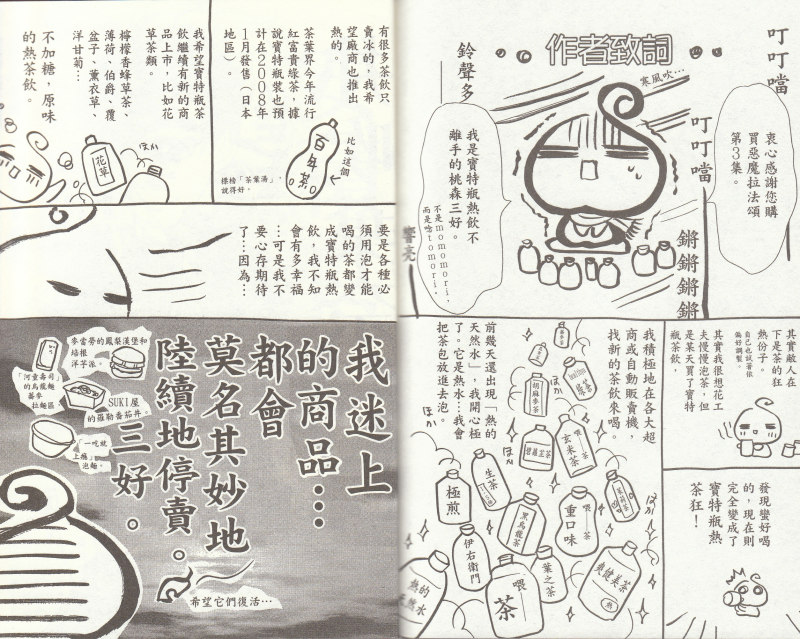 作者致詞
叮叮噹
叮叮噹
鏘鏘鏘鏘
寒風吹…
鈴聲多
響亮
衷心感謝您購
買惡魔拉法頌
第3集。
我是寶特瓶熱飲不
離手的桃森三好。
不是momomori，
而是唸tomori。
其實敝人在
下是茶的狂
熱份子。
自己也試著依
偏好調製。
其實我很想花工
夫慢慢泡茶，但
是某天買了寶特
瓶茶飲，
發現蠻好喝
的，現在則
完全變成了
寶特瓶熱
茶狂！
我積極地在各大超
商或自動販賣機，
找新的茶飲來喝。
前幾天還出現「熱的
天然水」，我開心極
了。它是熱水…我會
把茶包放進去泡。
ほか
ほか
ほか
ほか
胡麻麥茶
綠茶
碧螺全茶
玄米茶
茉莉茶
生茶
極煎
黑烏龍茶
喂—茶
重口味
伊右衛門
葉之茶
喂…
茶
爽健美茶
熱
熱的
天然水
有很多茶飲只
賣冰的，我希
望廠商也推出
熱的。
茶葉界今年流行
紅富貴綠茶，據
說寶特瓶裝也預
計在2008年
1月發售（日本
地區）。
比如這個
百年茶
標榜「茶葉湯」，
說得好。
我希望寶特瓶茶
飲繼續有新的商
品上市，比如花
草茶類。
檸檬香蜂草茶、
薄荷、伯爵、覆
盆子、薰衣草、
洋甘菊…
不加糖，原味
的熱茶飲。
花草
ほか
要是各種必
須用泡才能
喝的茶都變
成寶特瓶熱
飲，我不知
會有多幸福
…可是我不
要心存期待
了…因為…
我迷上
的商品…
都會
莫名其妙地
陸續地停賣。
三好。
麥當勞的鳳梨漢堡和
培根
洋芋派。
「河童壽司」
的烏龍麵
蕎麥
拉麵區
SUKI屋
的羅勒番茄丼。
「一吃就
上癮」
泡麵。
希望它們復活…